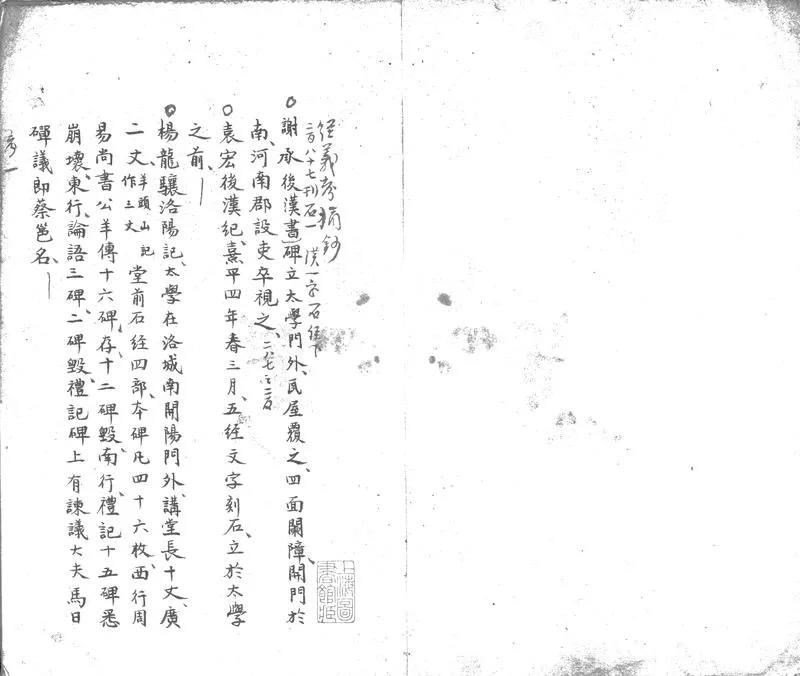 經義考摘鈔
二百八十七刊石一 漢一字石經下
謝承後漢書碑立太學門外、瓦屋覆之、四面闌障、開門於
南、河南郡設吏卒視之、二八七之二百
袁宏後漢紀、熹平四年春三月、五經文字刻石、立於太學
之前、
楊龍驤洛陽記、太學在洛城南開陽門外、講堂長十丈、廣
二丈、羊頭山記作三丈 堂前石經四部、本碑凡四十六枚、西行周
易尚書公羊傳十六碑、存、十二碑毀、南行、禮記十五碑悉
崩壞、東行、論語三碑、二碑毀、禮記碑上有諫議大夫馬日
磾議即蔡邕名、
上海圖書館藏